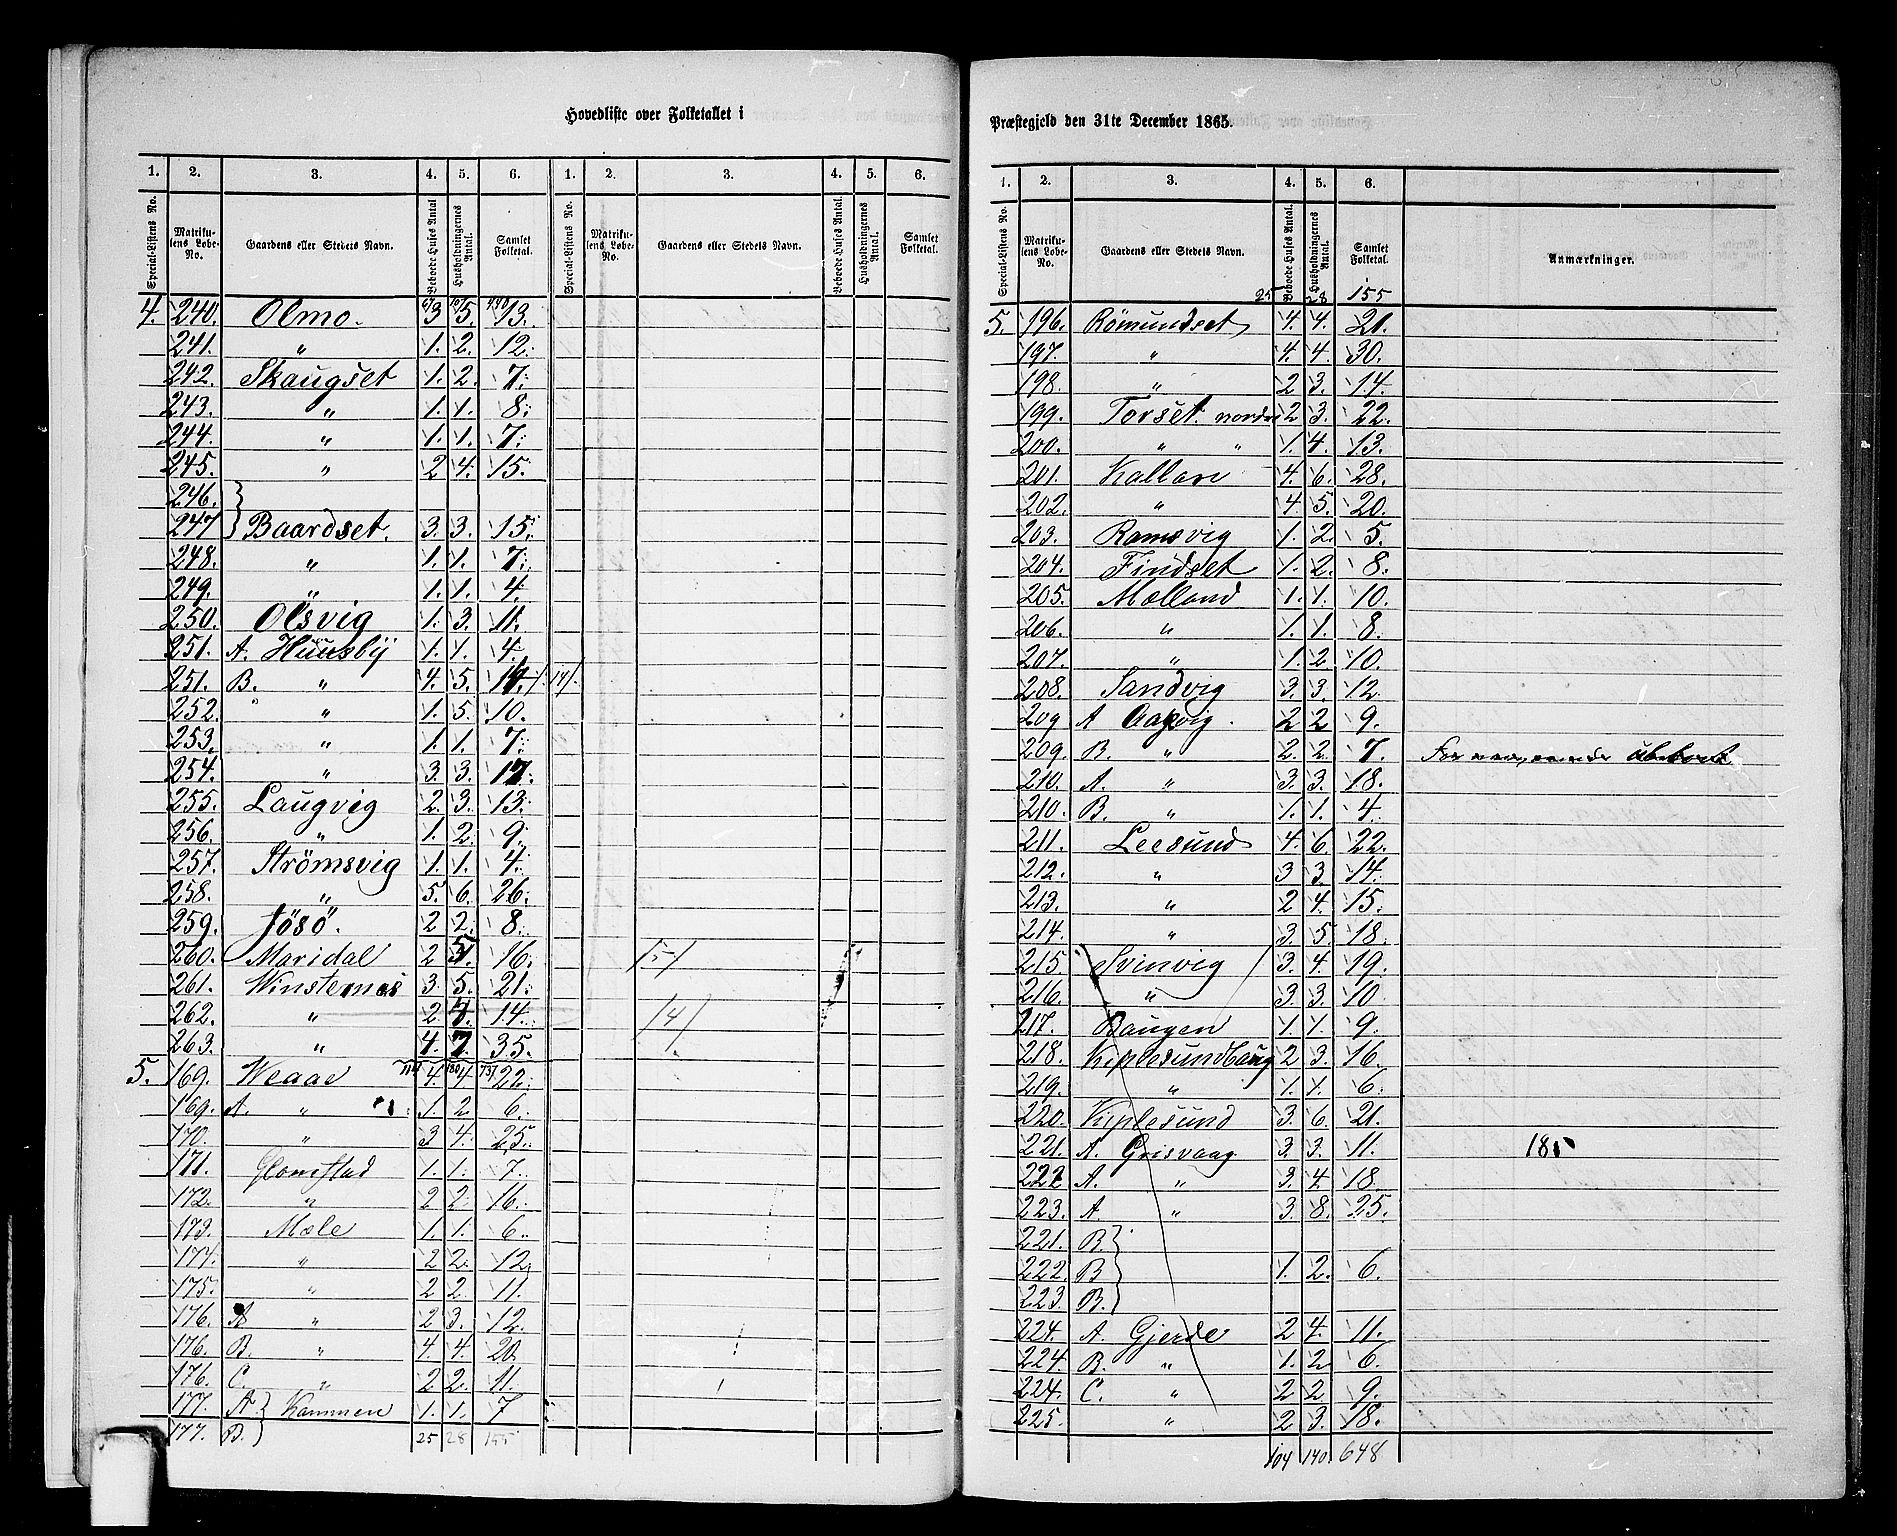 Hovedliste over Folketallet i
1. 2. 3. 4. 5. 6. 1. 2. 3. 4. 5. 6.
Special-Listens No. Matrikulens Løbe-No. Gaardens eller Stedets Navn. Beboede Huses Antal Husholdningernes Antal. Samlet Folketal. Special-Listens No. Matrikulens Løbe-No. Gaardens eller Stedets Navn. Beboede Huses Antal. Husholdningernes Antal. Samlet Folketal.
4. 240. Olmo. 3 5. 13.
241. " 1. 2. 12.
242. Skaugset 1. 2. 7.
243. " 1. 1. 8.
244. " 1. 1. 7.
245. " 2 4. 15.
246. }
247 } Baardset. 3. 3. 15.
248. " 1. 1. 7.
249. " 1. 1. 4.
250. Olsvig 1. 3. 11.
251. A. Huusby 1. 1. 4.
251. B. " 4. 5.
252. " 1. 5. 10.
253. " 1. 1. 7.
254. " 3. 3. 17.
255. Laugvig 2. 3. 13.
256. " 1. 2. 9.
257. Strömsvig 1. 1. 4.
258. " 5. 6. 26.
259. Jösö. 2 2. 8.
260. Maridal 2 5 16.
261. Winsternes 3. 5. 21.
262. " 2. 14.
263. " 4. 7. 35.
5. 169. Weaae 4. 4 22
169. A. " 1. 2 6.
170. " 3 4. 25.
171. Glomstad 1. 1. 7.
172. " 2 2. 16.
173. Mæle 1. 1. 6.
174. " 2 2. 12.
175. " 2 2. 11.
176. A " 2 3. 12.
176. B. " 4. 4. 20.
176. C. " 2 2. 11.
177. A } Kammen 1. 1. 7
177. B. } 25 28 155
Præstegjeld den 31te December 1865.
1. 2. 3. 4. 5. 6.
Special-Listens No. Matrikulens Løbe-No. Gaardens eller Stedets Navn. Beboede Huses Antal. Husholdningernes Antal. Samlet Folketal. Anmærkninger.
25 28 155
5. 196. Römundset 4. 4. 21.
197. " 4. 4. 30.
198. " 2 3. 14.
199. Torset nordre 2 3. 22.
200. " " 1. 4. 13.
201. Kallan 4. 6. 28.
202. " 4 5. 20.
203. Ramsvig 1. 2. 5.
204. Findset 1. 2. 8.
205. Mælland 1. 1. 10.
206. " 1. 1. 8.
207. " 1. 2 10.
208. Sandvig 3. 3. 12.
209 A Aasvig. 2 2 9.
209. B. " 2. 2. 7.
210. A. " 3. 3. 18.
210. B. " 1. 1. 4.
211. Leesund 4. 6. 22.
212. " 3 3. 14.
213. " 2 4. 15.
214. " 3. 5. 18.
215. Svinvig 3. 4. 19.
216. " 3. 3. 10.
217. Baugen 1. 1. 9.
218. Kiplesundhaug 2 3. 16.
219. " 1. 1. 6.
220. Kiplesund 3. 6. 21.
221. A. Grisvaag 3. 3. 11.
222 A. " 3. 4. 18.
223. A. " 3. 8. 25.
221. B. }
222. B } 1. 2. 6.
223. B. }
224. A. Gjerde 2 4. 11.
224. B. " 1. 2 6.
224. C. " 2 2 9.
225. " 2 3. 18.
104 140 648